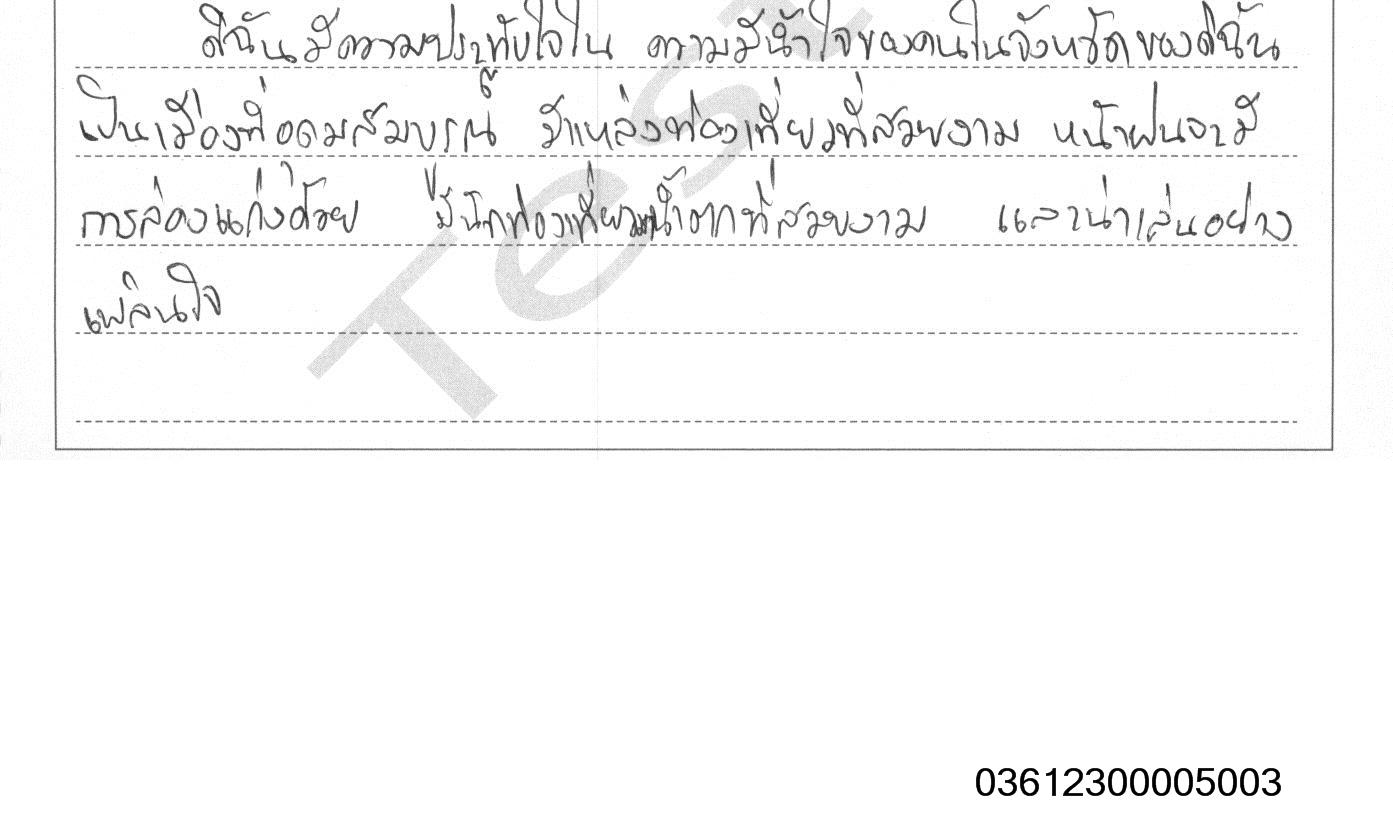 ดิฉันมีความประทับใจใน ความมีน้ำใจของคนในจังหวัดของดิฉัน
เป็นเมืองที่อุดมสมบูรณ์ มีแหล่งท่องเที่ยวที่สวยงาม หน้าฝนจะมี
การล่องแก่งด้วย มีนักท่องเที่ยว น้ำตกที่สวยงาม และน่าเล่นอย่าง
เพลินใจ
Test
03612300005003